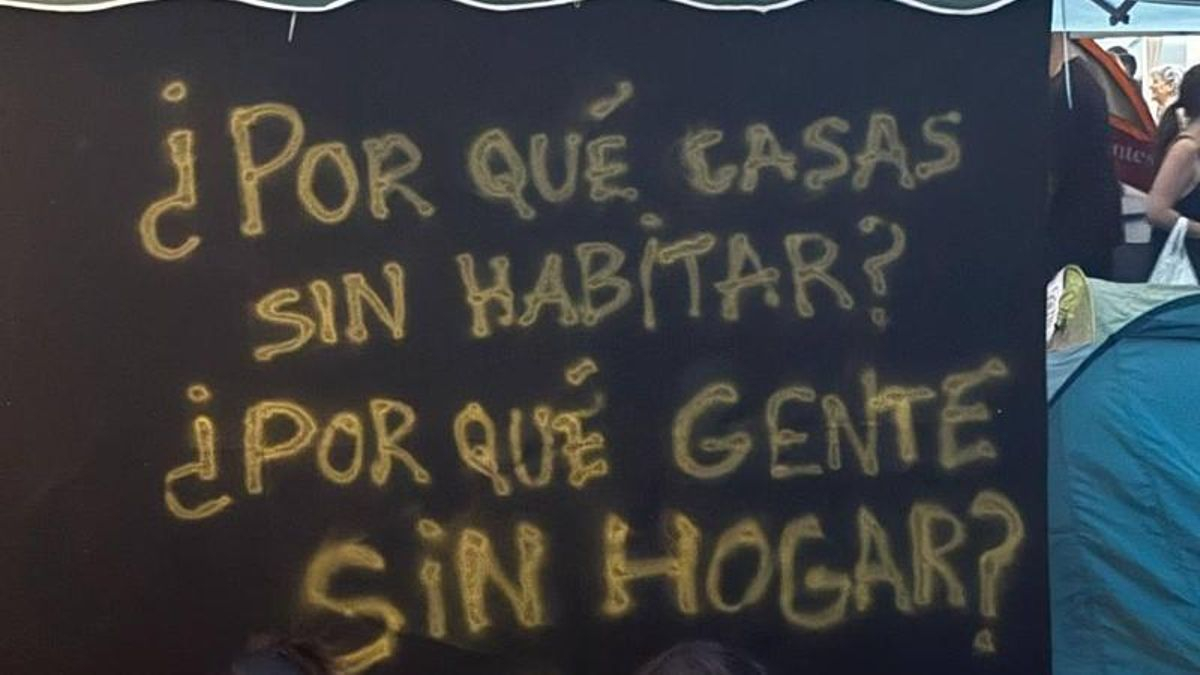 ¿POR QUÉ CASAS
SIN HABITAR?
¿POR QUÉ GENTE
SIN HOGAR?